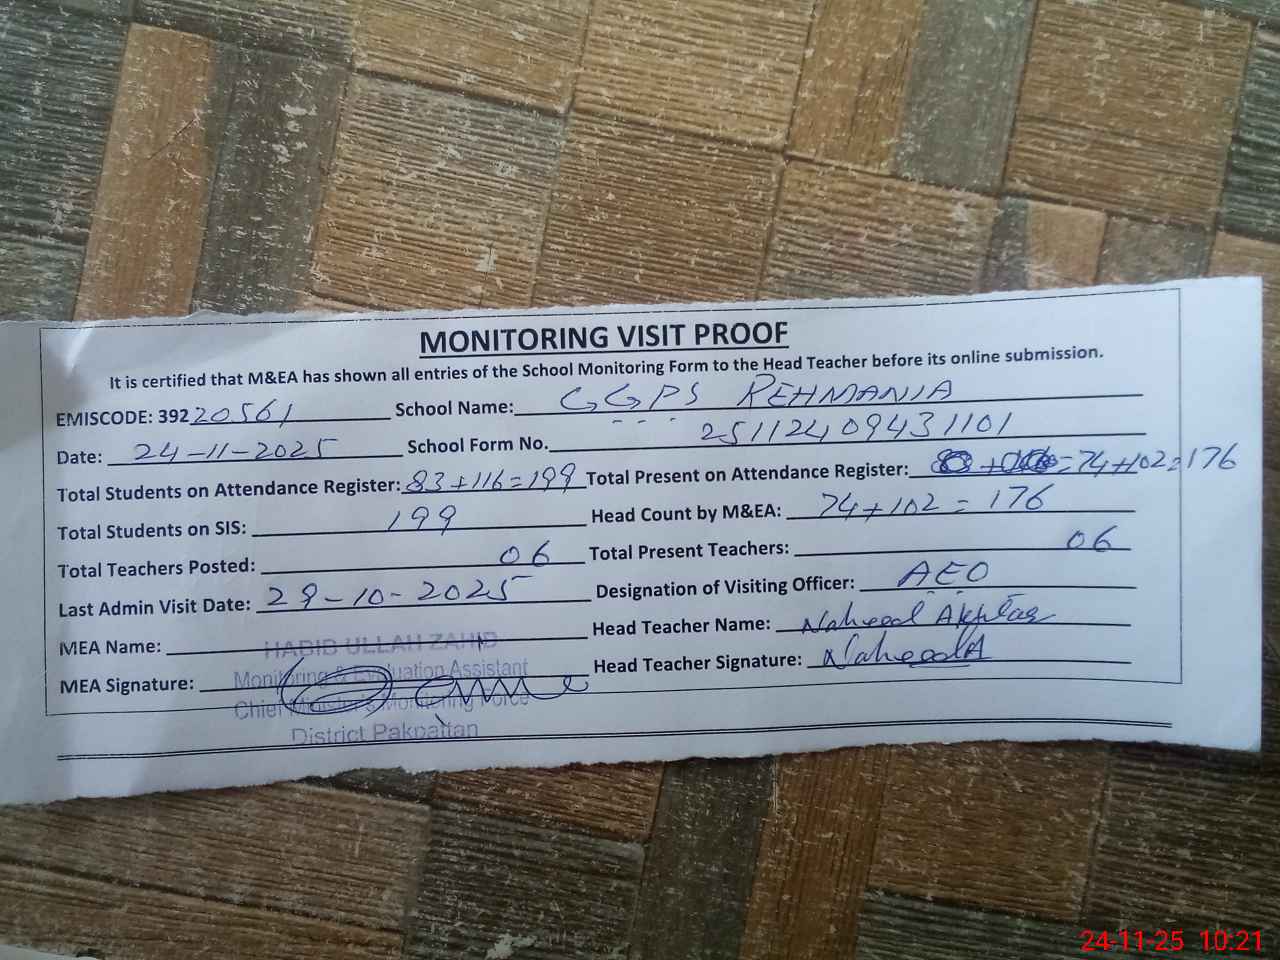 MONITORING VISIT PROOF
It is certified that M&EA has shown all entries of the School Monitoring Form to the Head Teacher before its online submission.
EMISCODE: 39220561 School Name: GGPS REHMANIA
Date: 24-11-2025 School Form No. 25112409431101
Total Students on Attendance Register: 83+116=199 Total Present on Attendance Register: =74+102=176
Total Students on SIS: 199 Head Count by M&EA: 74+102=176
Total Teachers Posted: 06 Total Present Teachers: 06
Last Admin Visit Date: 29-10-2025 Designation of Visiting Officer: AEO
MEA Name: HABIB ULLAH ZAHID Head Teacher Name: Naheed Akhtar
Monitoring & Evaluation Assistant
MEA Signature: Head Teacher Signature: NaheedA
Chief Minister's Monitoring Force
District Pakpattan
24-11-25 10:21